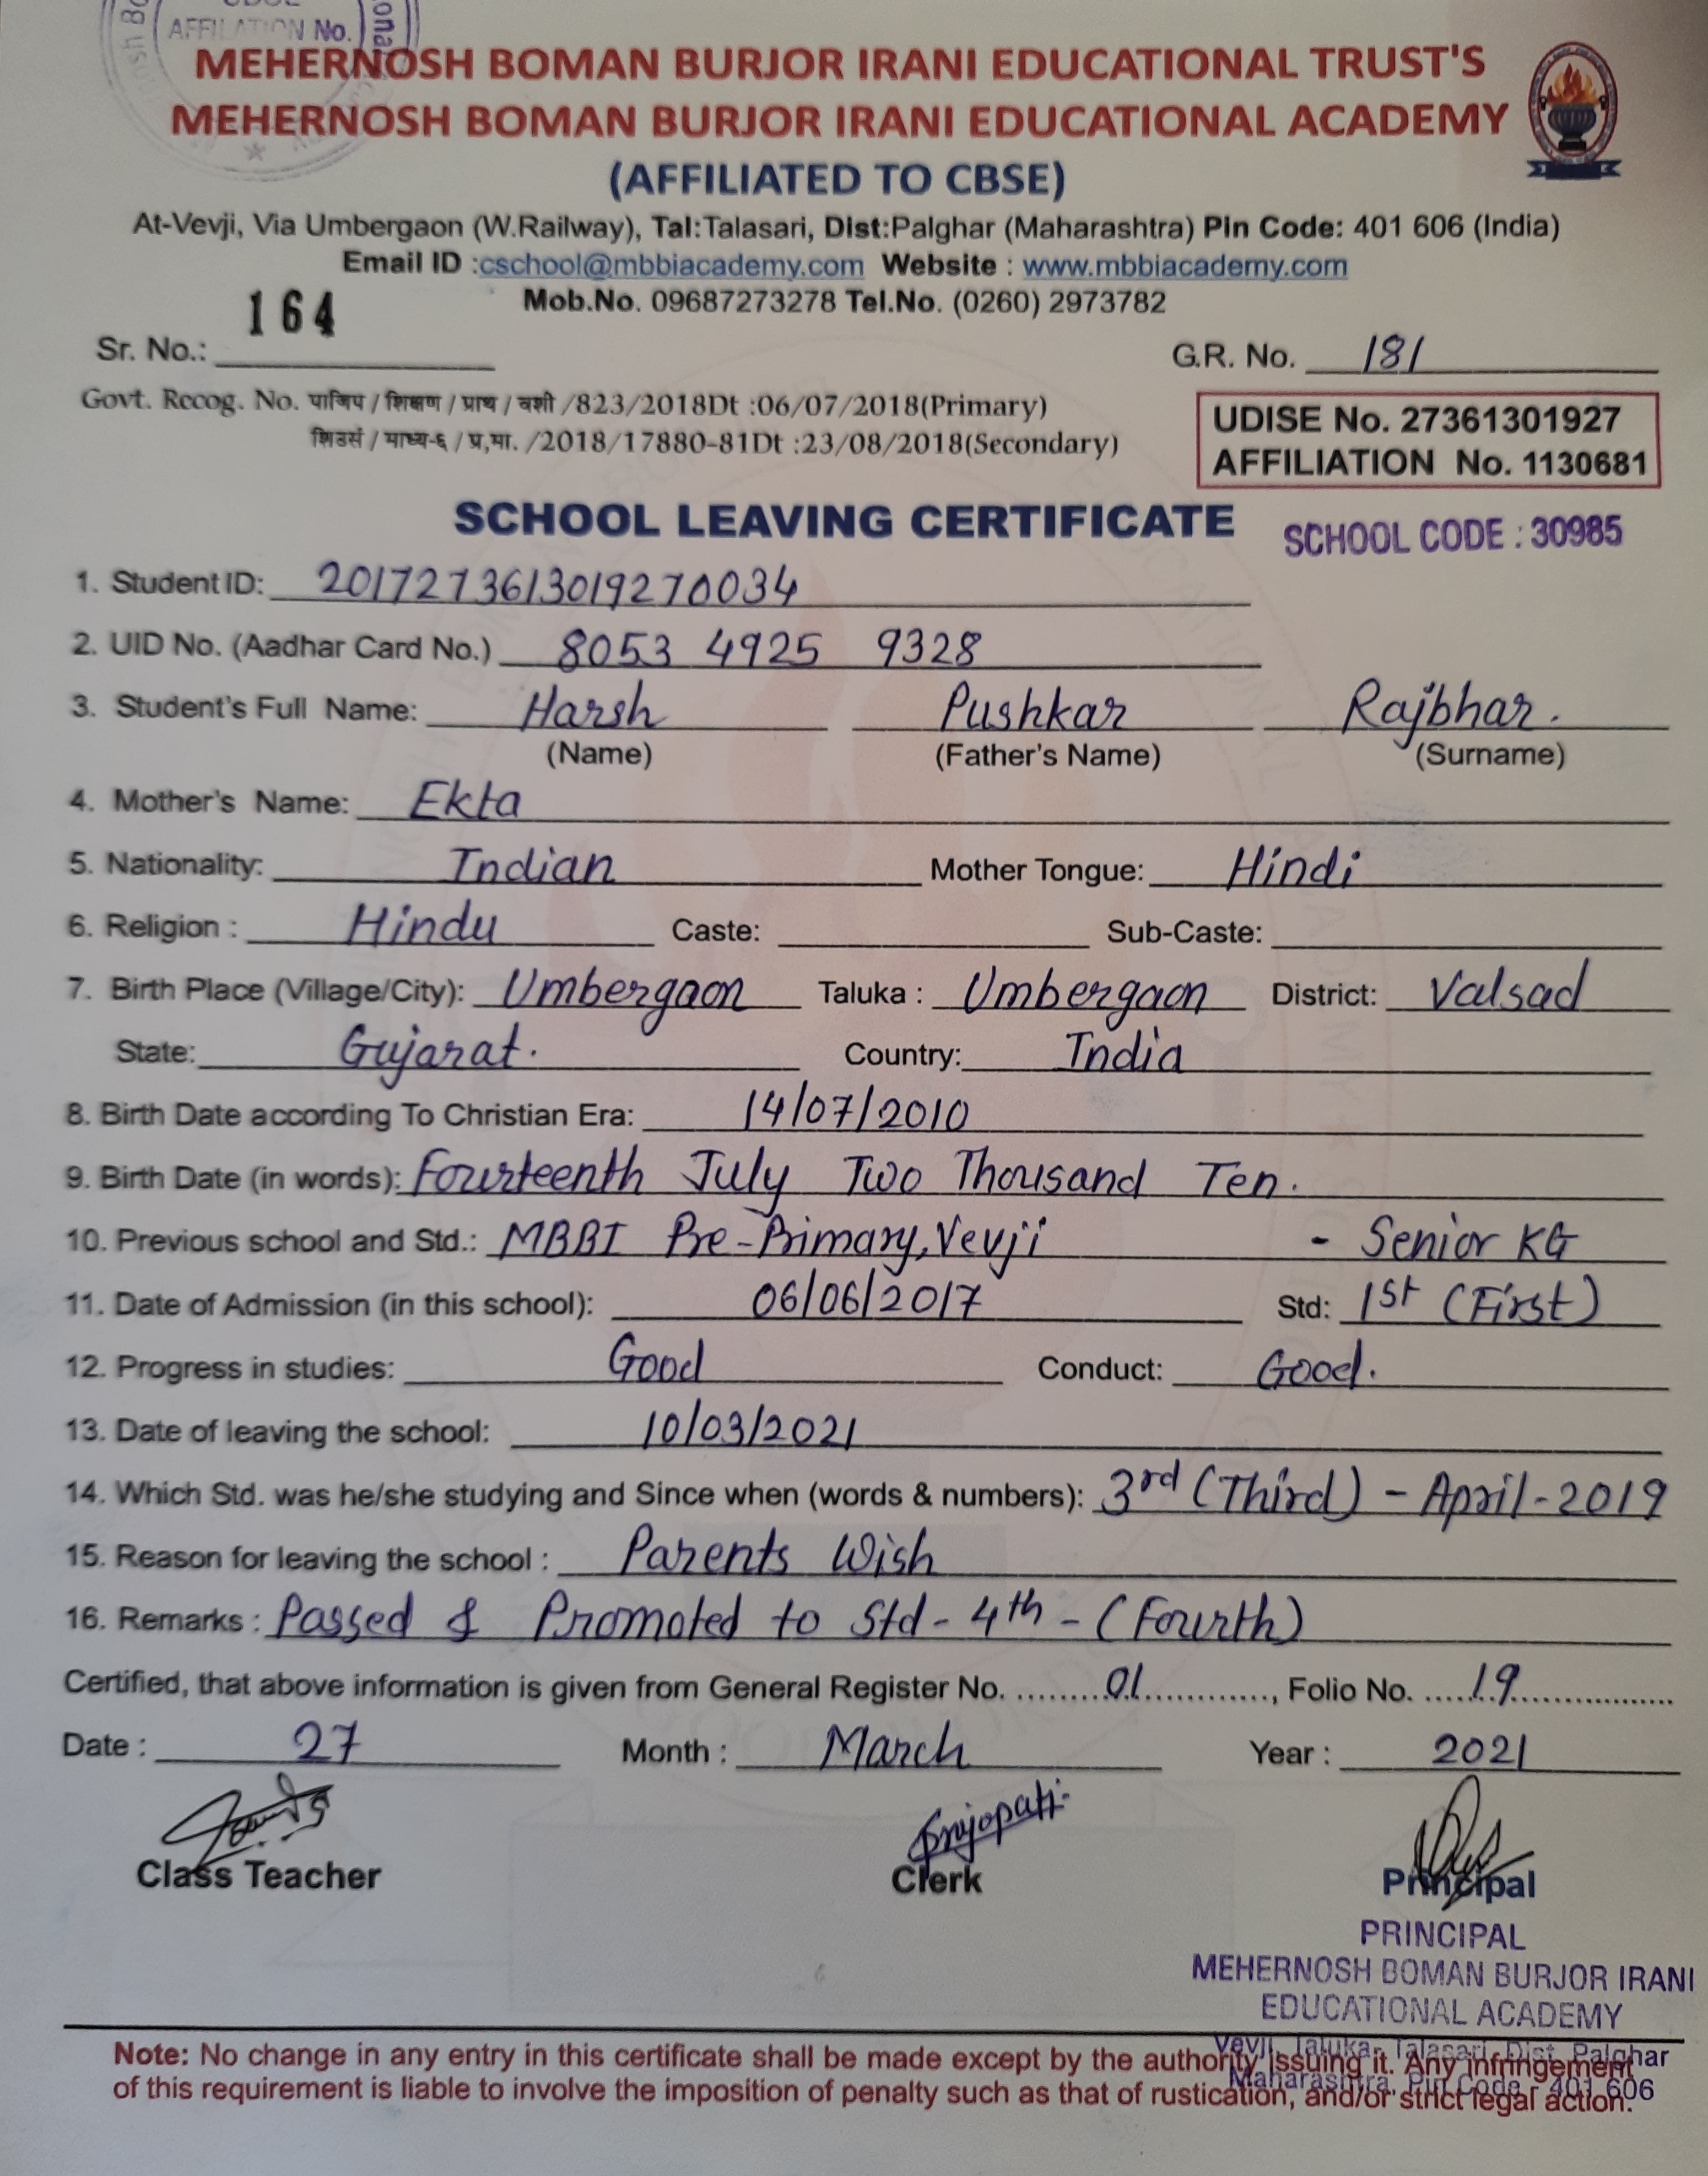 AFFILATION No.
MEHERNOSH BOMAN BURJOR IRANI EDUCATIONAL TRUST'S
MEHERNOSH BOMAN BURJOR IRANI EDUCATIONAL ACADEMY
(AFFILIATED TO CBSE)
At-Vevji, Via Umbergaon (W.Railway), Tal:Talasari, Dist:Palghar (Maharashtra) Pin Code: 401 606 (India)
Email ID :cschool@mbbiacademy.com Website : www.mbbiacademy.com
Mob.No. 09687273278 Tel.No. (0260) 2973782
Sr. No.: 164 G.R. No. 181
Govt. Recog. No. पाजिप / शिक्षण / प्राथ / वशी /823/2018Dt :06/07/2018(Primary)
शिउसं / माध्य-६ / प्र,मा. /2018/17880-81Dt :23/08/2018(Secondary)
UDISE No. 27361301927
AFFILIATION No. 1130681
SCHOOL LEAVING CERTIFICATE SCHOOL CODE : 30985
1. Student ID: 2017273613019270034
2. UID No. (Aadhar Card No.) 8053 4925 9328
3. Student's Full Name: Harsh Pushkar Rajbhar.
(Name) (Father's Name) (Surname)
4. Mother's Name: Ekta
5. Nationality: Indian Mother Tongue: Hindi
6. Religion : Hindu Caste: Sub-Caste:
7. Birth Place (Village/City): Umbergaon Taluka : Umbergaon District: Valsad
State: Gujarat. Country: India
8. Birth Date according To Christian Era: 14/07/2010
9. Birth Date (in words): Fourteenth July Two Thousand Ten.
10. Previous school and Std.: MBBI Pre-Primary, Vevji - Senior KG
11. Date of Admission (in this school): 06/06/2017 Std: 1st (First)
12. Progress in studies: Good Conduct: Good.
13. Date of leaving the school: 10/03/2021
14. Which Std. was he/she studying and Since when (words & numbers): 3rd (Third) - April-2019
15. Reason for leaving the school : Parents Wish
16. Remarks : Passed & Promoted to Std- 4th - (Fourth)
Certified, that above information is given from General Register No. .........01............., Folio No. .....19.................
Date : 27 Month : March Year : 2021
Class Teacher Clerk Principal
PRINCIPAL
MEHERNOSH BOMAN BURJOR IRANI
EDUCATIONAL ACADEMY
Vevji, Taluka- Talasari, Dist. Palghar
Maharashtra, Pin Code - 401 606
Note: No change in any entry in this certificate shall be made except by the authority issuing it. Any infringement
of this requirement is liable to involve the imposition of penalty such as that of rustication, and/or strict legal action.